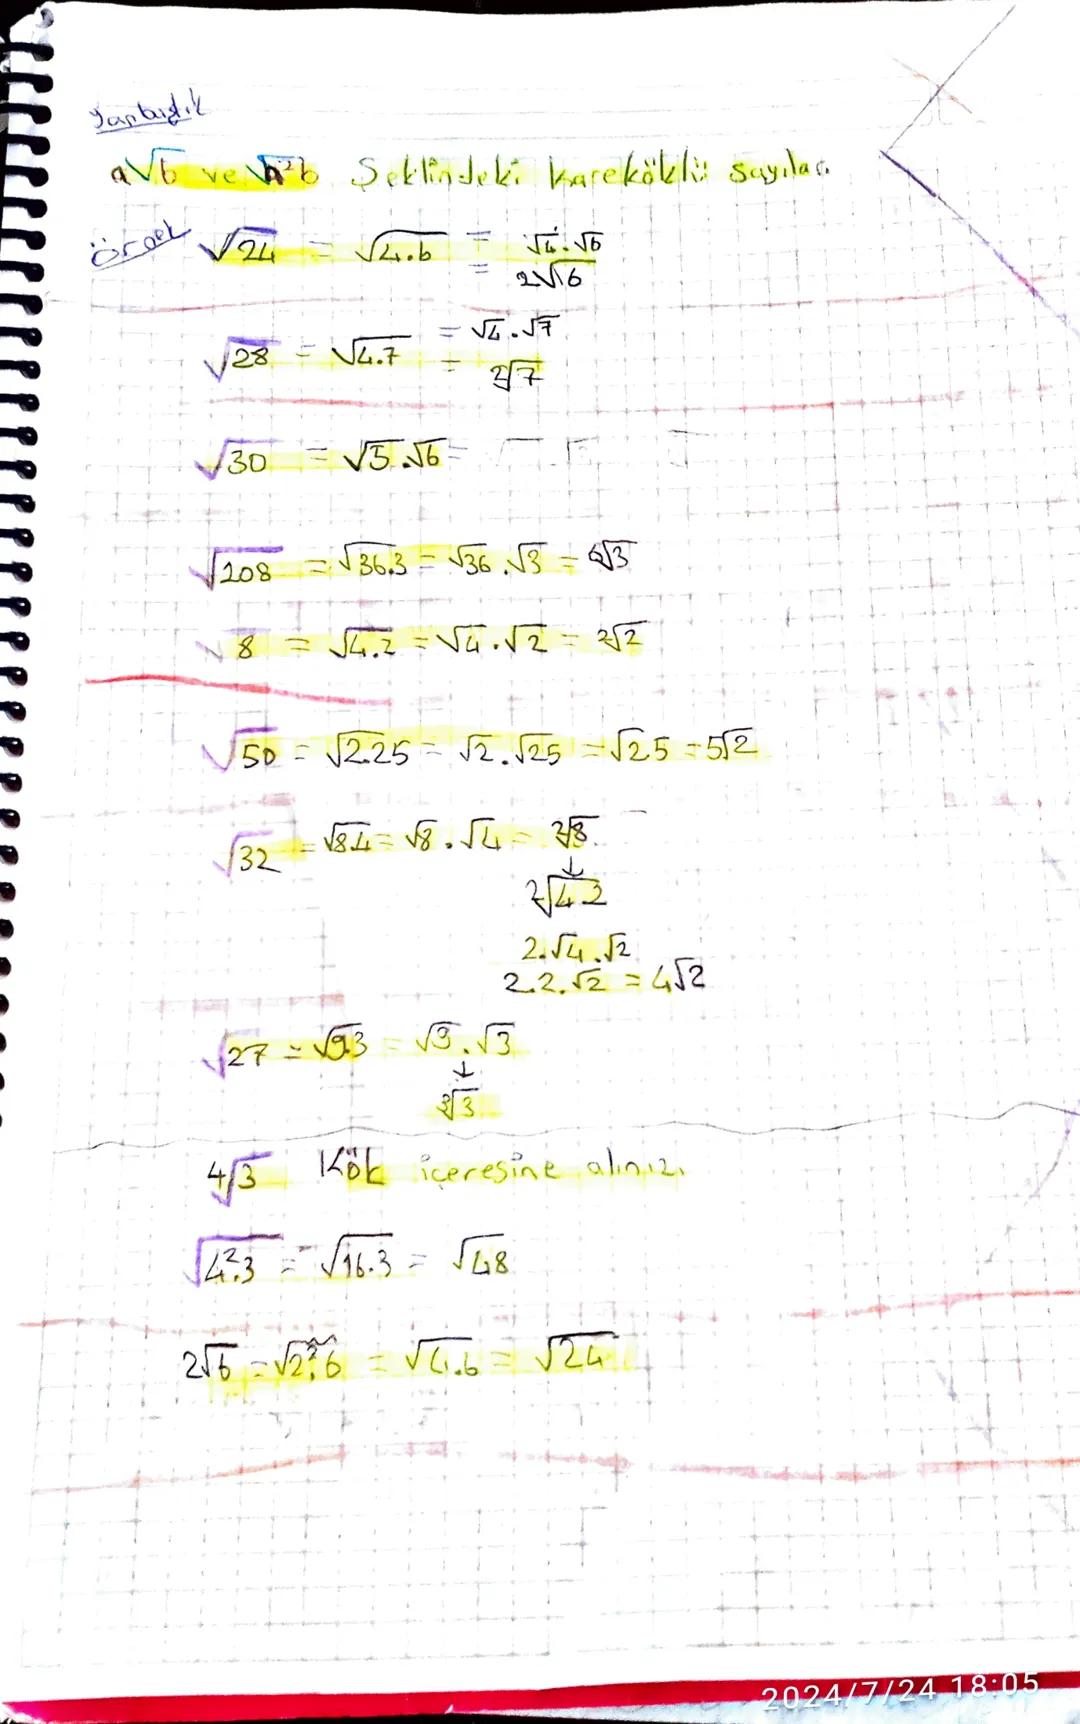 a√b ve √a²b Şeklindeki kareköklü sayılar.
Örnek √24 = √4.6 = √4.√6
= 2√6
√28 = √4.7 = √4.√7
= 2√7
√30 = √5.√6 =
√108 = √36.3 = √36.√3 = 6√3
√8 = √4.2 = √4.√2 = 2√2
√50 = √2.25 = √2.√25 = √2.5 = 5√2
√32 = √8.4 = √8.√4 = 2√8
↓
2√4.2
2.√4.√2
2.2.√2 = 4√2
√27 = √9.3 = √9.√3
↓
3√3
4√3 Kök içeresine alınız.
√4².3 = √16.3 = √48
2√6 = √2².6 = √4.6 = √24
2024/7/24 18:05